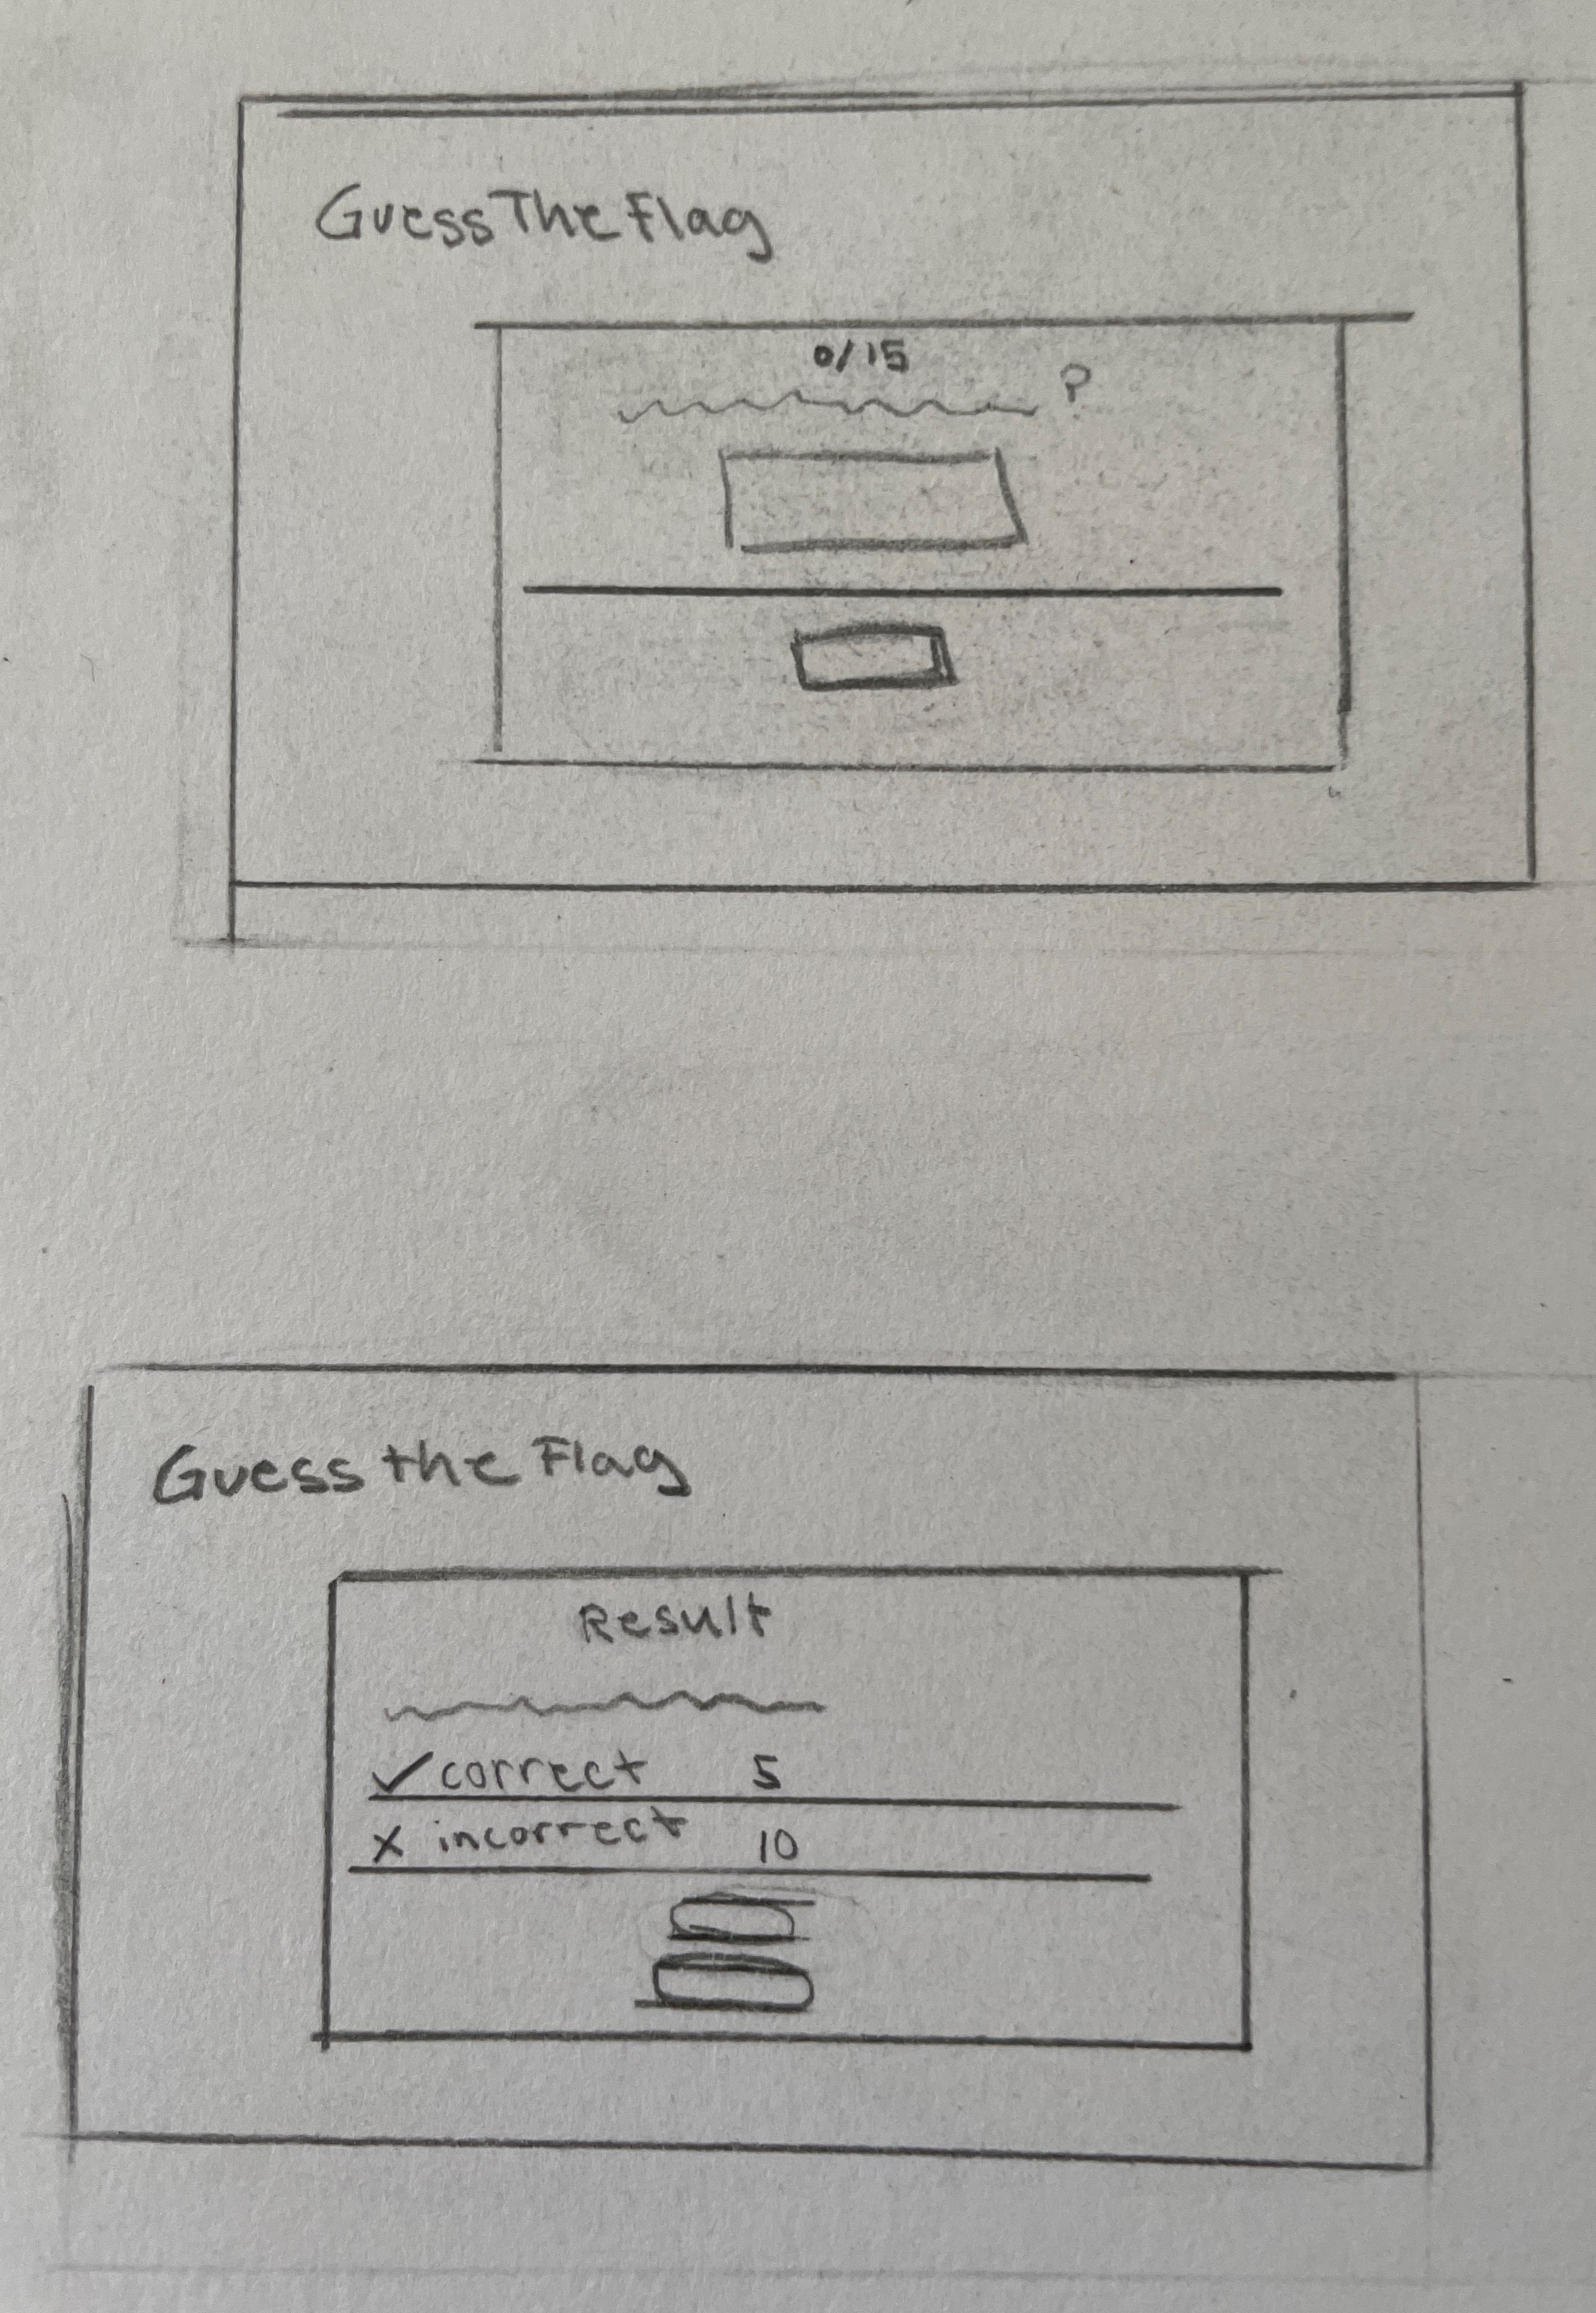 Guess The Flag
0/15
?
Guess the Flag
Result
✓ correct 5
x incorrect 10